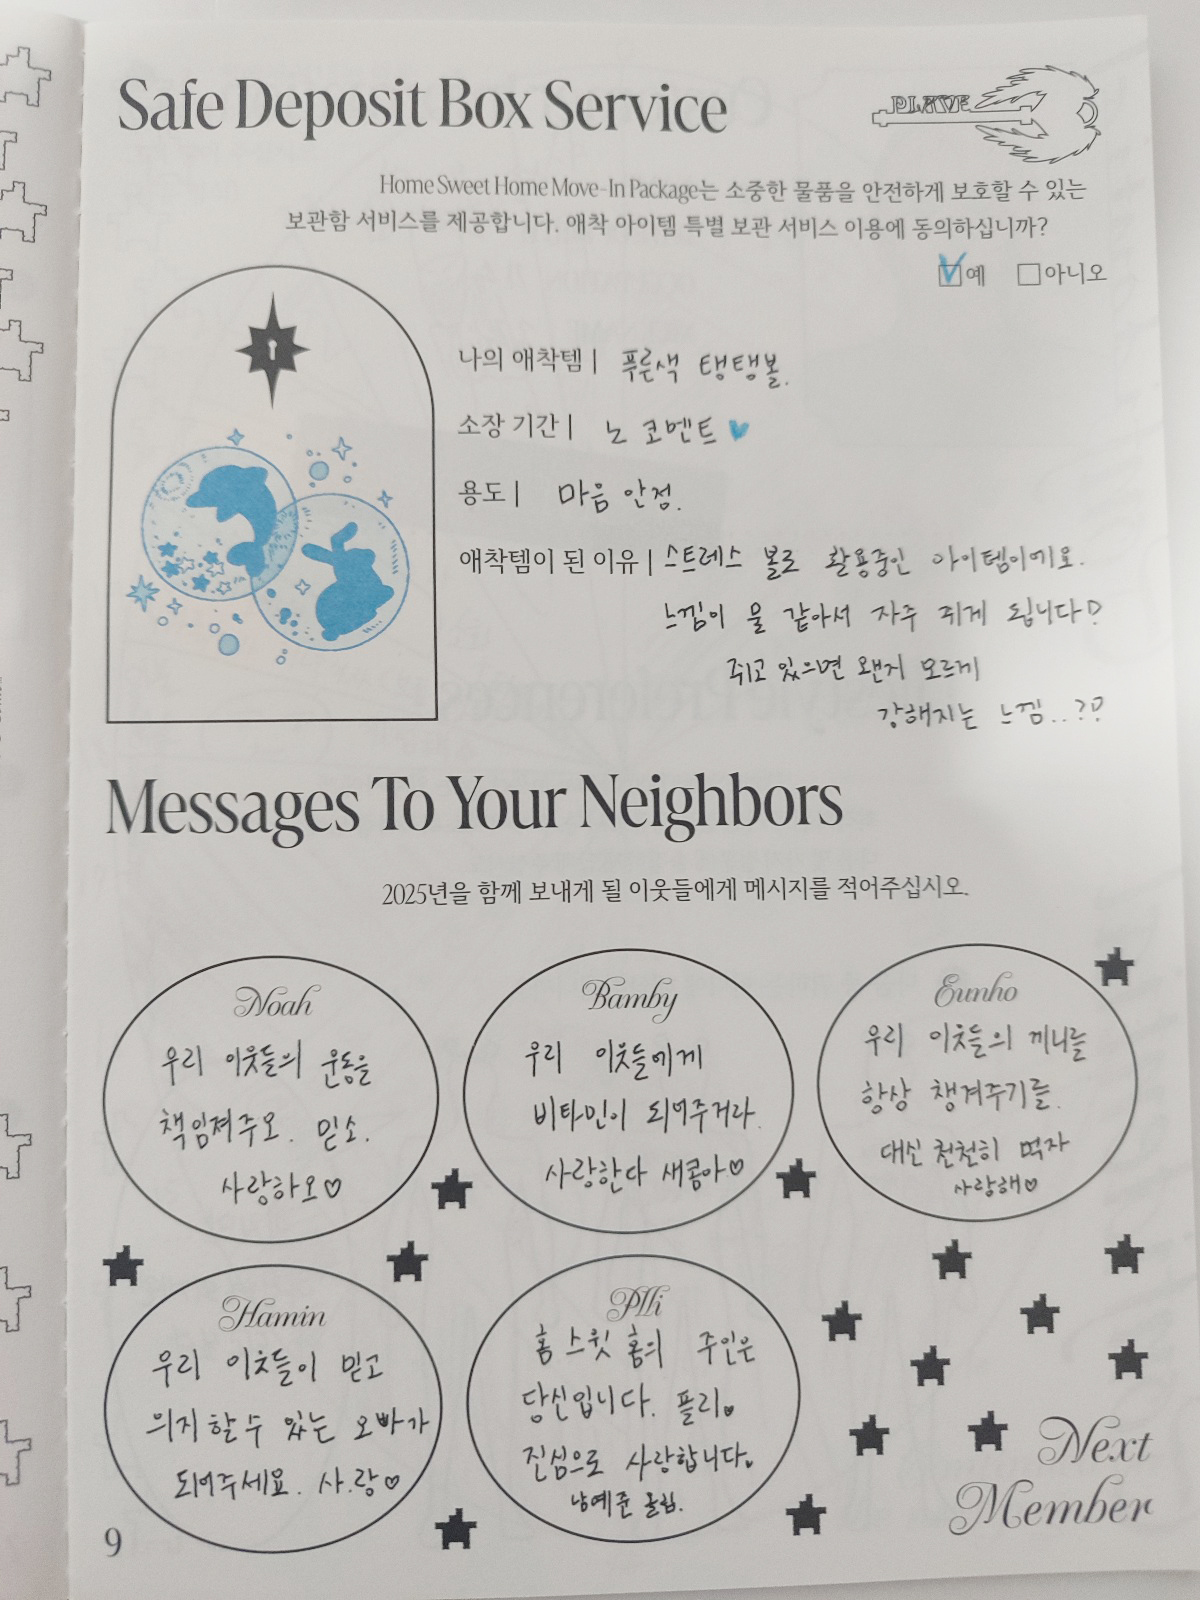 Safe Deposit Box Service
PLAVE
Home Sweet Home Move-In Package는 소중한 물품을 안전하게 보호할 수 있는
보관함 서비스를 제공합니다. 애착 아이템 특별 보관 서비스 이용에 동의하십니까?
예 아니오
나의 애착템 | 푸른색 탱탱볼.
소장 기간 | 노 코멘트
용도 | 마음 안정.
애착템이 된 이유 | 스트레스 볼로 활용중인 아이템이에요.
느낌이 물 같아서 자주 쥐게 됩니다!
쥐고 있으면 왠지 모르게
강해지는 느낌..?!
Messages To Your Neighbors
2025년을 함께 보내게 될 이웃들에게 메시지를 적어주십시오.
Noah
우리 이웃들의 운동을
책임져주오. 믿소.
사랑하오♡
Bamby
우리 이웃들에게
비타민이 되어주거라.
사랑한다 새콤아♡
Eunho
우리 이웃들의 끼니를
항상 챙겨주기를.
대신 천천히 먹자
사랑해♡
Hamin
우리 이웃들이 믿고
의지 할 수 있는 오빠가
되어주세요. 사.랑♡
Plli
홈 스윗 홈의 주인은
당신입니다. 플리♥
진심으로 사랑합니다.
남예준 올림.
Next
Member
9